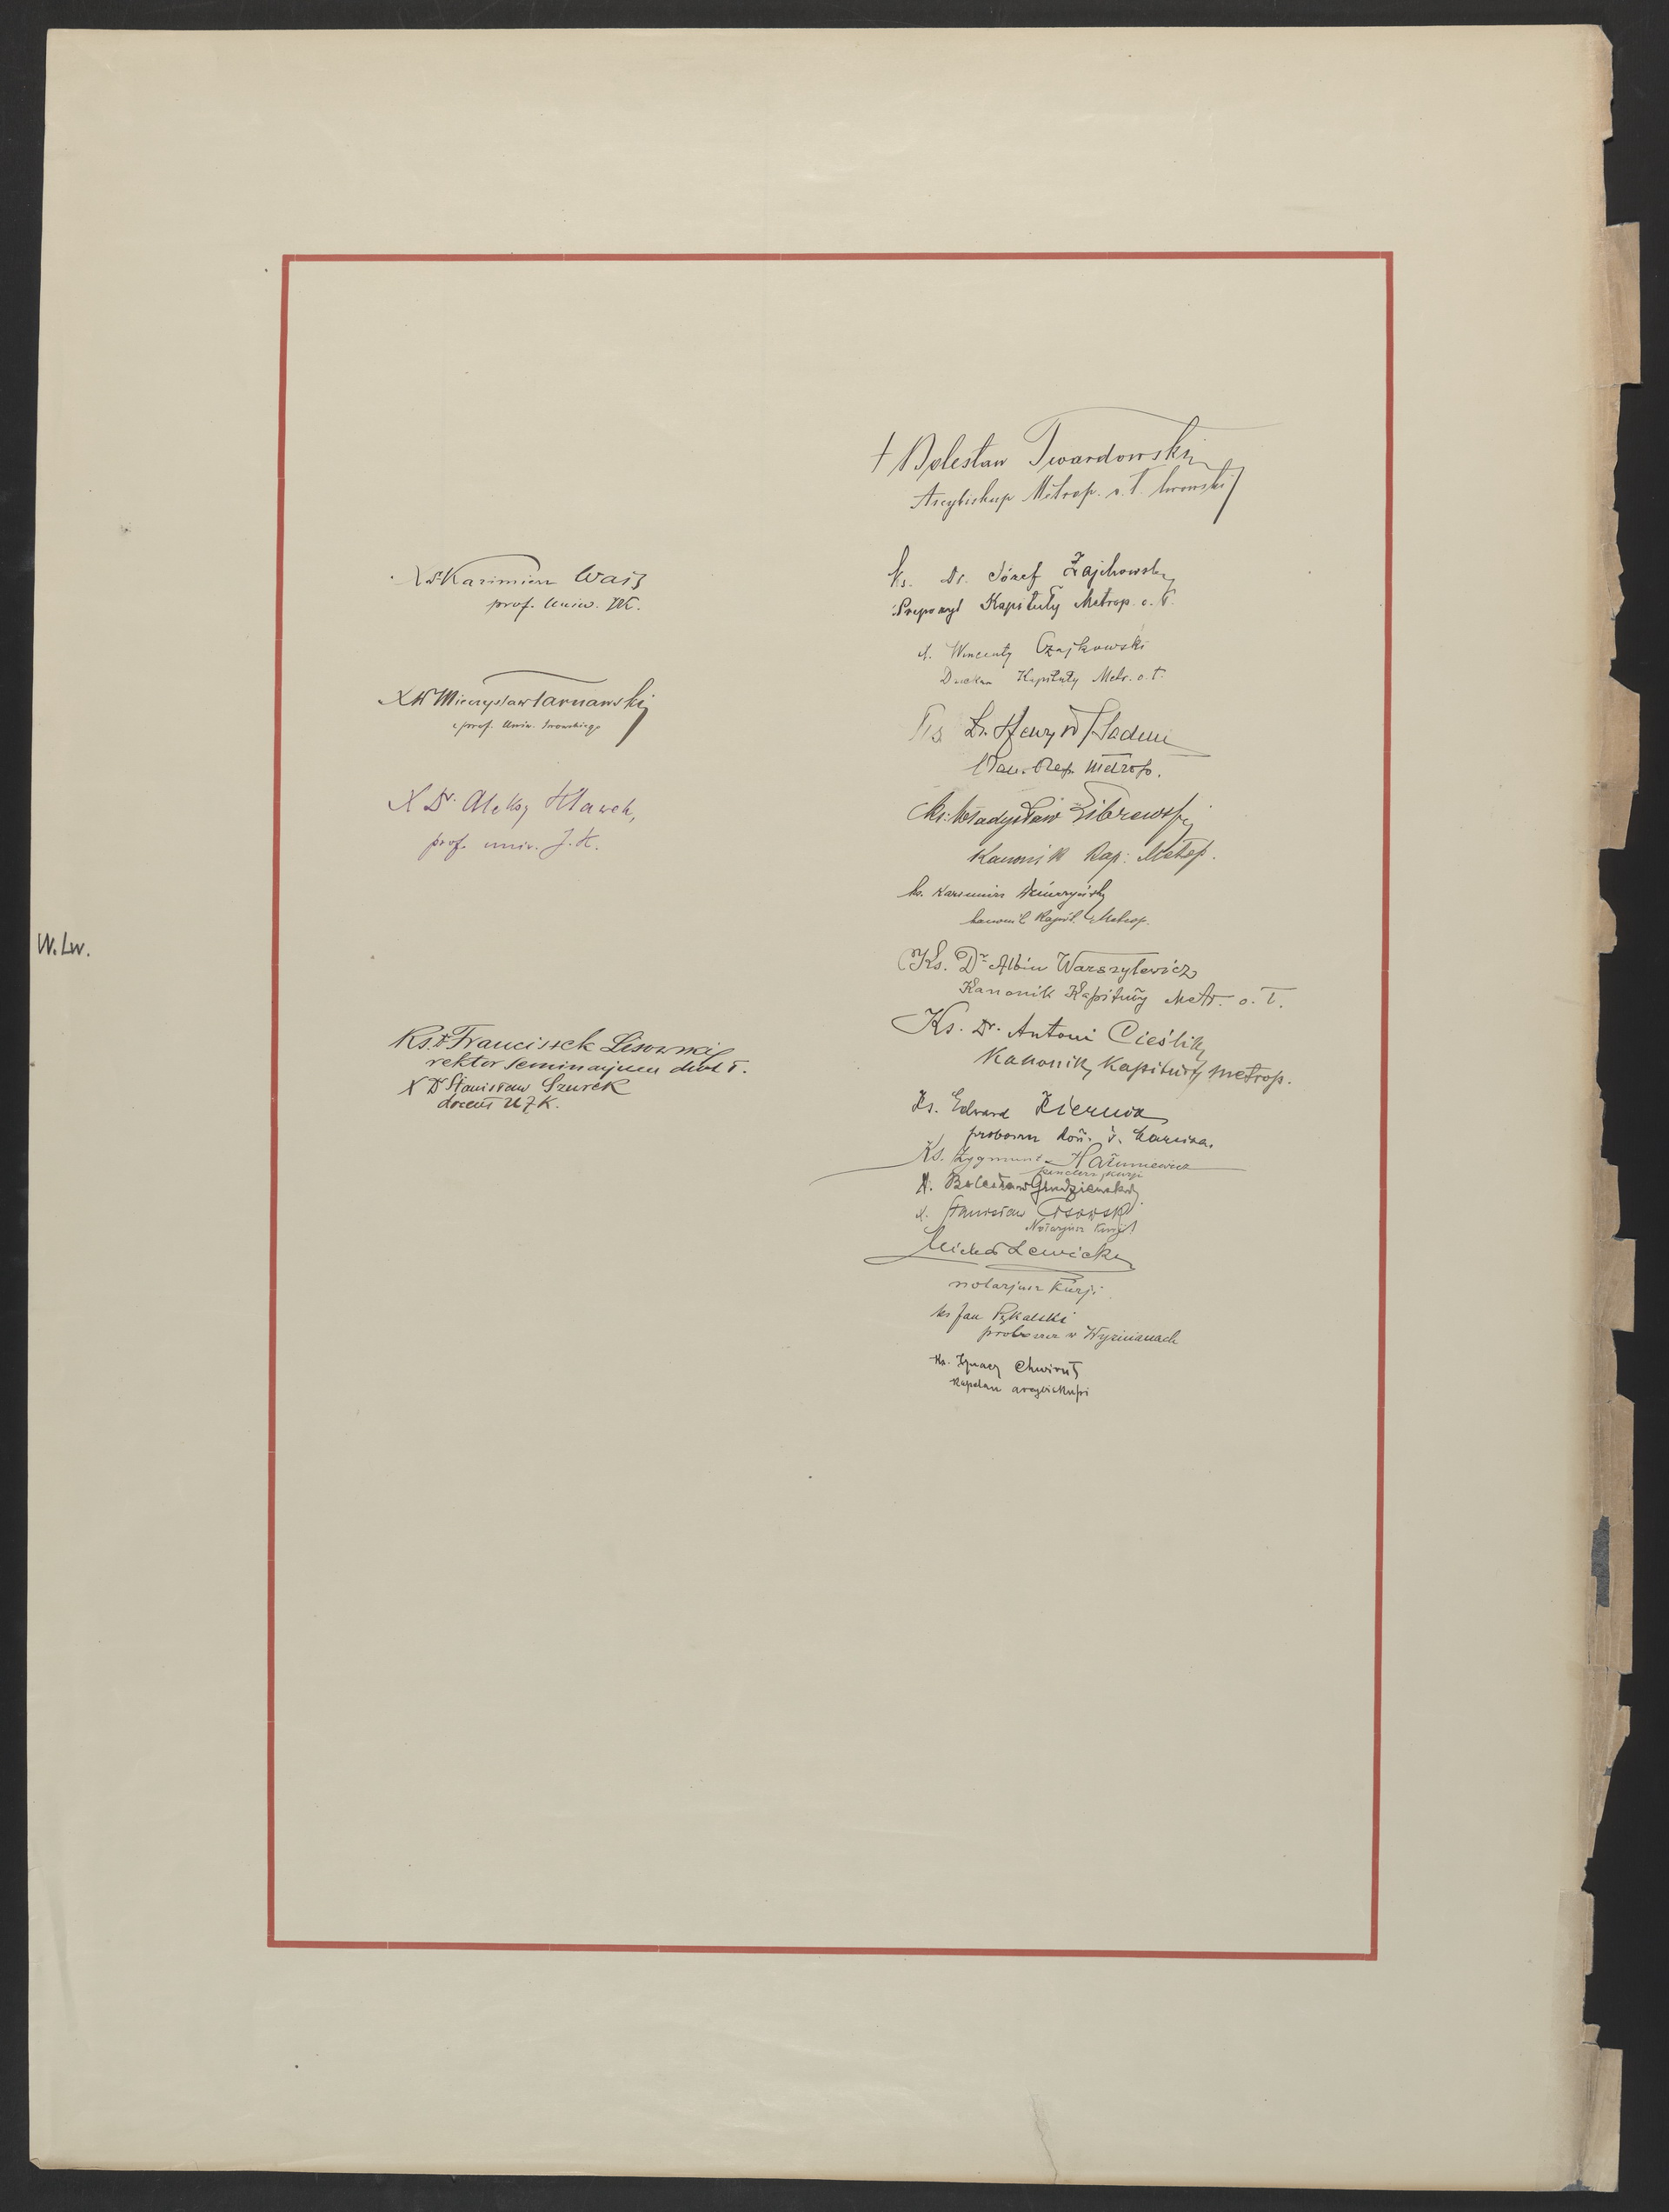 W. Lw.
X Dr Kazimierz Wais
prof. Uniw. JK.
X Dr Mieczysław Tarnawski
prof. Uniw. lwowskiego
X Dr. Aleksy Klawek,
prof. univ. J. K.
Ks. Dr Franciszek Lisowski
rektor seminarjum duch
X Dr Stanisław Szurek
docent UJK.
† Bolesław Twardowski
Arcybiskup Metrop. o. ł. lwowski
Ks. Dr. Józef Zajchowski
Prepozyt Kapituły Metrop. o. ł.
X. Wincenty Czajkowski
Dziekan Kapituły Metr. o. ł.
Ks Dr. Henryk Badeni
Kan. Kap. Metrop.
Ks. Władysław Librewski
Kanonik Kap: Metrop.
Ks. Kazimierz Dziurzyński
kanonik Kapit. Metrop.
Ks. Dr Albin Warszylewicz
Kanonik Kapituły Metr. o. ł.
Ks. Dr. Antoni Cieślik,
Kanonik, Kapituły metrop.
Ks. Edward
proboszcz Marcina.
Ks. Zygmunt Hałuniewicz
kanclerz Kurji
X. Bolesław Grudzieński
X. Stanisław
Notarjusz Kurji
Michał Lewicki
notarjusz Kurji
ks Jan Pykalski
proboszcz w Wyżnianach
Ks. Ignacy Chwirut
Kapelan arcybiskupi